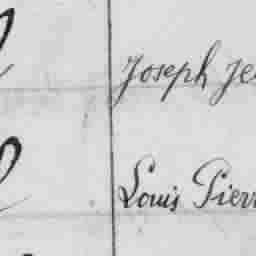 Joseph Je
Louis Pierr